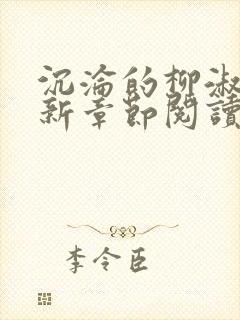 沉淪的柳淑
新章節閱讀
李令臣